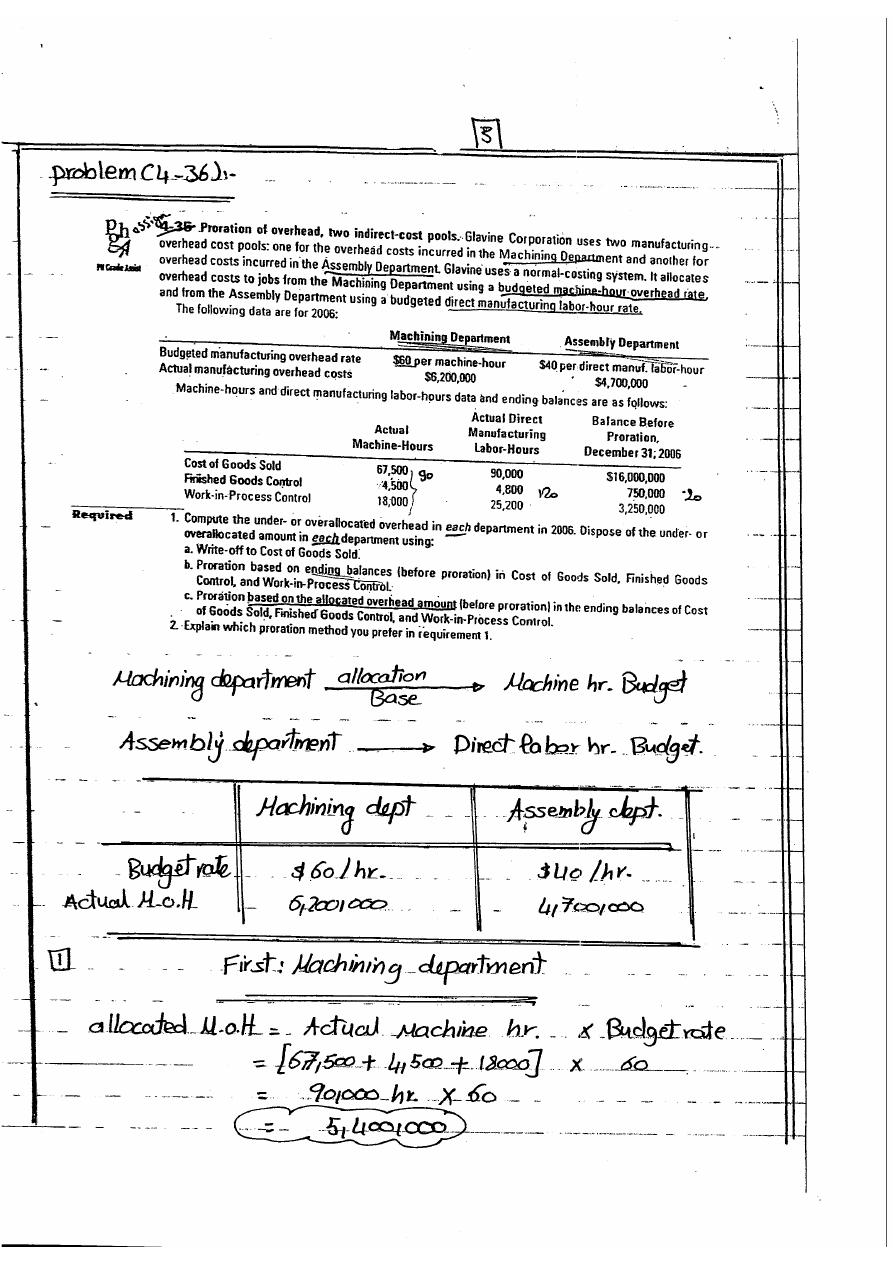 5
problem (4-36):-
4-36 Proration of overhead, two indirect-cost pools. Glavine Corporation uses two manufacturing-
overhead cost pools: one for the overhead costs incurred in the Machining Department and another for
PH Grade Assist
overhead costs incurred in the Assembly Department. Glavine uses a normal-costing system. It allocates
overhead costs to jobs from the Machining Department using a budgeted machine-hour overhead rate,
and from the Assembly Department using a budgeted direct manufacturing labor-hour rate.
The following data are for 2006:
Machining Department Assembly Department
Budgeted manufacturing overhead rate $60 per machine-hour $40 per direct manuf. labor-hour
Actual manufacturing overhead costs $6,200,000 $4,700,000
Machine-hours and direct manufacturing labor-hours data and ending balances are as follows:
Actual Direct Balance Before
Actual Manufacturing Proration,
Machine-Hours Labor-Hours December 31, 2006
Cost of Goods Sold 67,500 90,000 $16,000,000
Finished Goods Control 4,500 90 4,800 120 750,000 20
Work-in-Process Control 18,000 25,200 3,250,000
Required 1. Compute the under- or overallocated overhead in each department in 2006. Dispose of the under- or
overallocated amount in each department using:
a. Write-off to Cost of Goods Sold.
b. Proration based on ending balances (before proration) in Cost of Goods Sold, Finished Goods
Control, and Work-in-Process Control.
c. Proration based on the allocated overhead amount (before proration) in the ending balances of Cost
of Goods Sold, Finished Goods Control, and Work-in-Process Control.
2. Explain which proration method you prefer in requirement 1.
Machining department allocation Base → Machine hr. Budget
Assembly department → Direct labor hr. Budget.
Machining dept Assembly dept.
Budget rate $60/hr. $40/hr.
Actual M.o.H 6,200,000 4,700,000
1 First: Machining department
allocated M.o.H = Actual Machine hr. x Budget rate
= [67,500 + 4,500 + 18000] x 60
= 90,000 hr. x 60
= 5,400,000